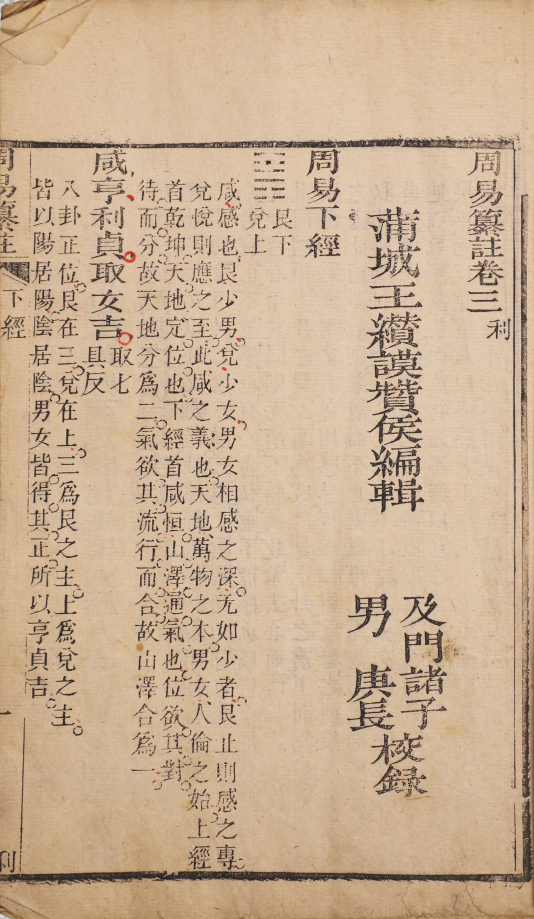 周易纂註卷三 利
蒲城王纘謨贊侯編輯
及門諸子
男 庚長 校録
周易下經
䷞ 艮下
兌上
咸感也艮少男兌少女男女相感之深无如少者艮止則感之專
兌悅則應之至此咸之義也天地萬物之本男女人倫之始上經
首乾坤天地定位也下經首咸恒山澤通氣也位欲其對
待而分故天地分爲二氣欲其流行而合故山澤合爲一
咸亨利貞取女吉 取七
具反
八卦正位艮在三兌在上三爲艮之主上爲兌之主
皆以陽居陽陰居陰男女皆得其正所以亨貞吉
周易纂註 下經 一 利